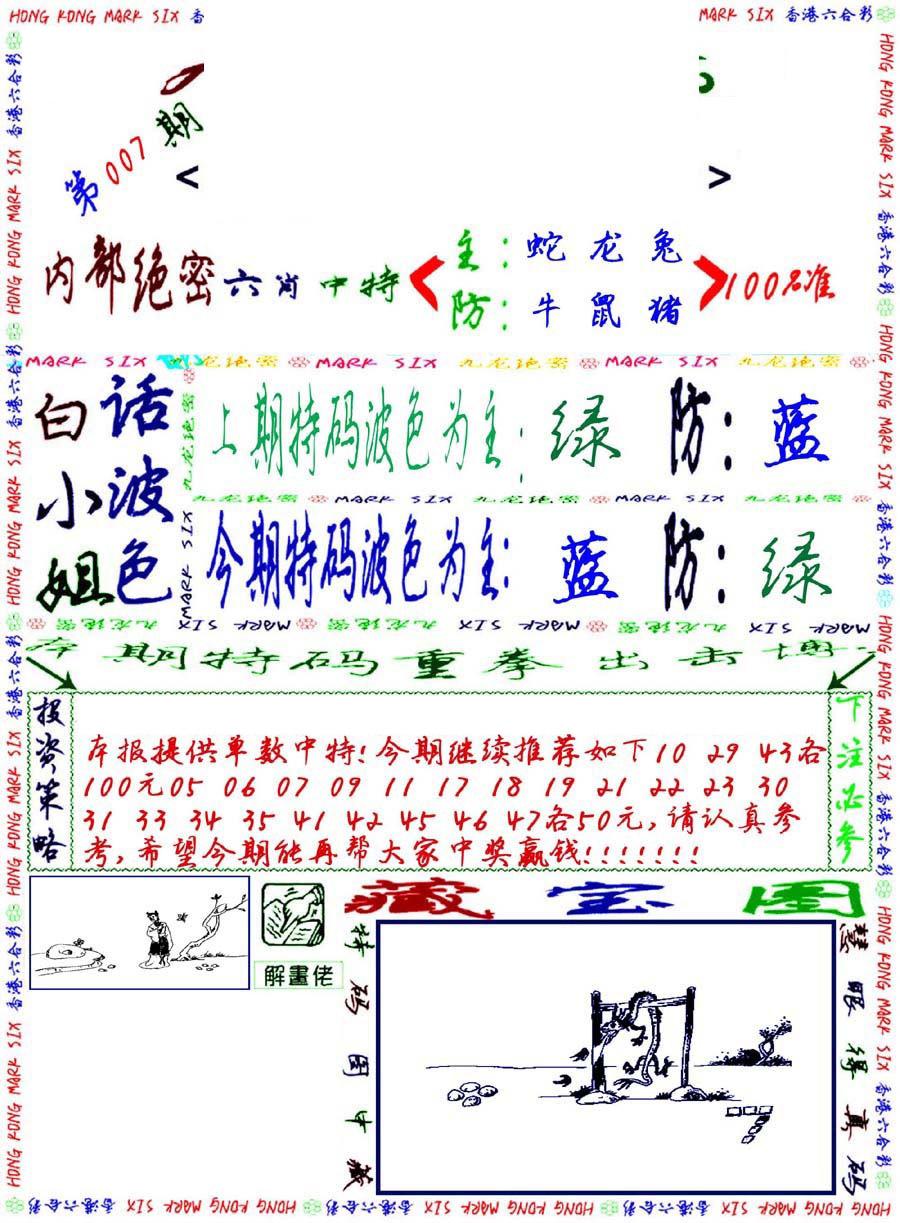 HONG KONG MARK SIX 香
MARK SIX 香港六合彩
第007期
< >
内部绝密六肖中特
主:蛇龙兔
防:牛鼠猪
100%准
MARK SIX 九龙绝密 MARK SIX 九龙绝密 MARK SIX 九龙绝密
白话小波姐色
上期特码波色为主:绿 防:蓝
九龙绝密 MARK SIX 九龙绝密 MARK SIX 九龙绝密
今期特码波色为主:蓝 防:绿
九龙绝密 MARK SIX 九龙绝密 MARK SIX 九龙绝密 MARK SIX
本期特码重拳出击博
投资策略
本报提供单数中特!今期继续推荐如下10 29 43各
100元05 06 07 09 11 17 18 19 21 22 23 30
31 33 34 35 41 42 45 46 47各50元,请认真参
考,希望今期能再帮大家中奖赢钱!!!!!!!
下注必参
藏宝图
解畫佬
特码图中藏
慧眼得真码
HONG KONG MARK SIX 香港六合彩